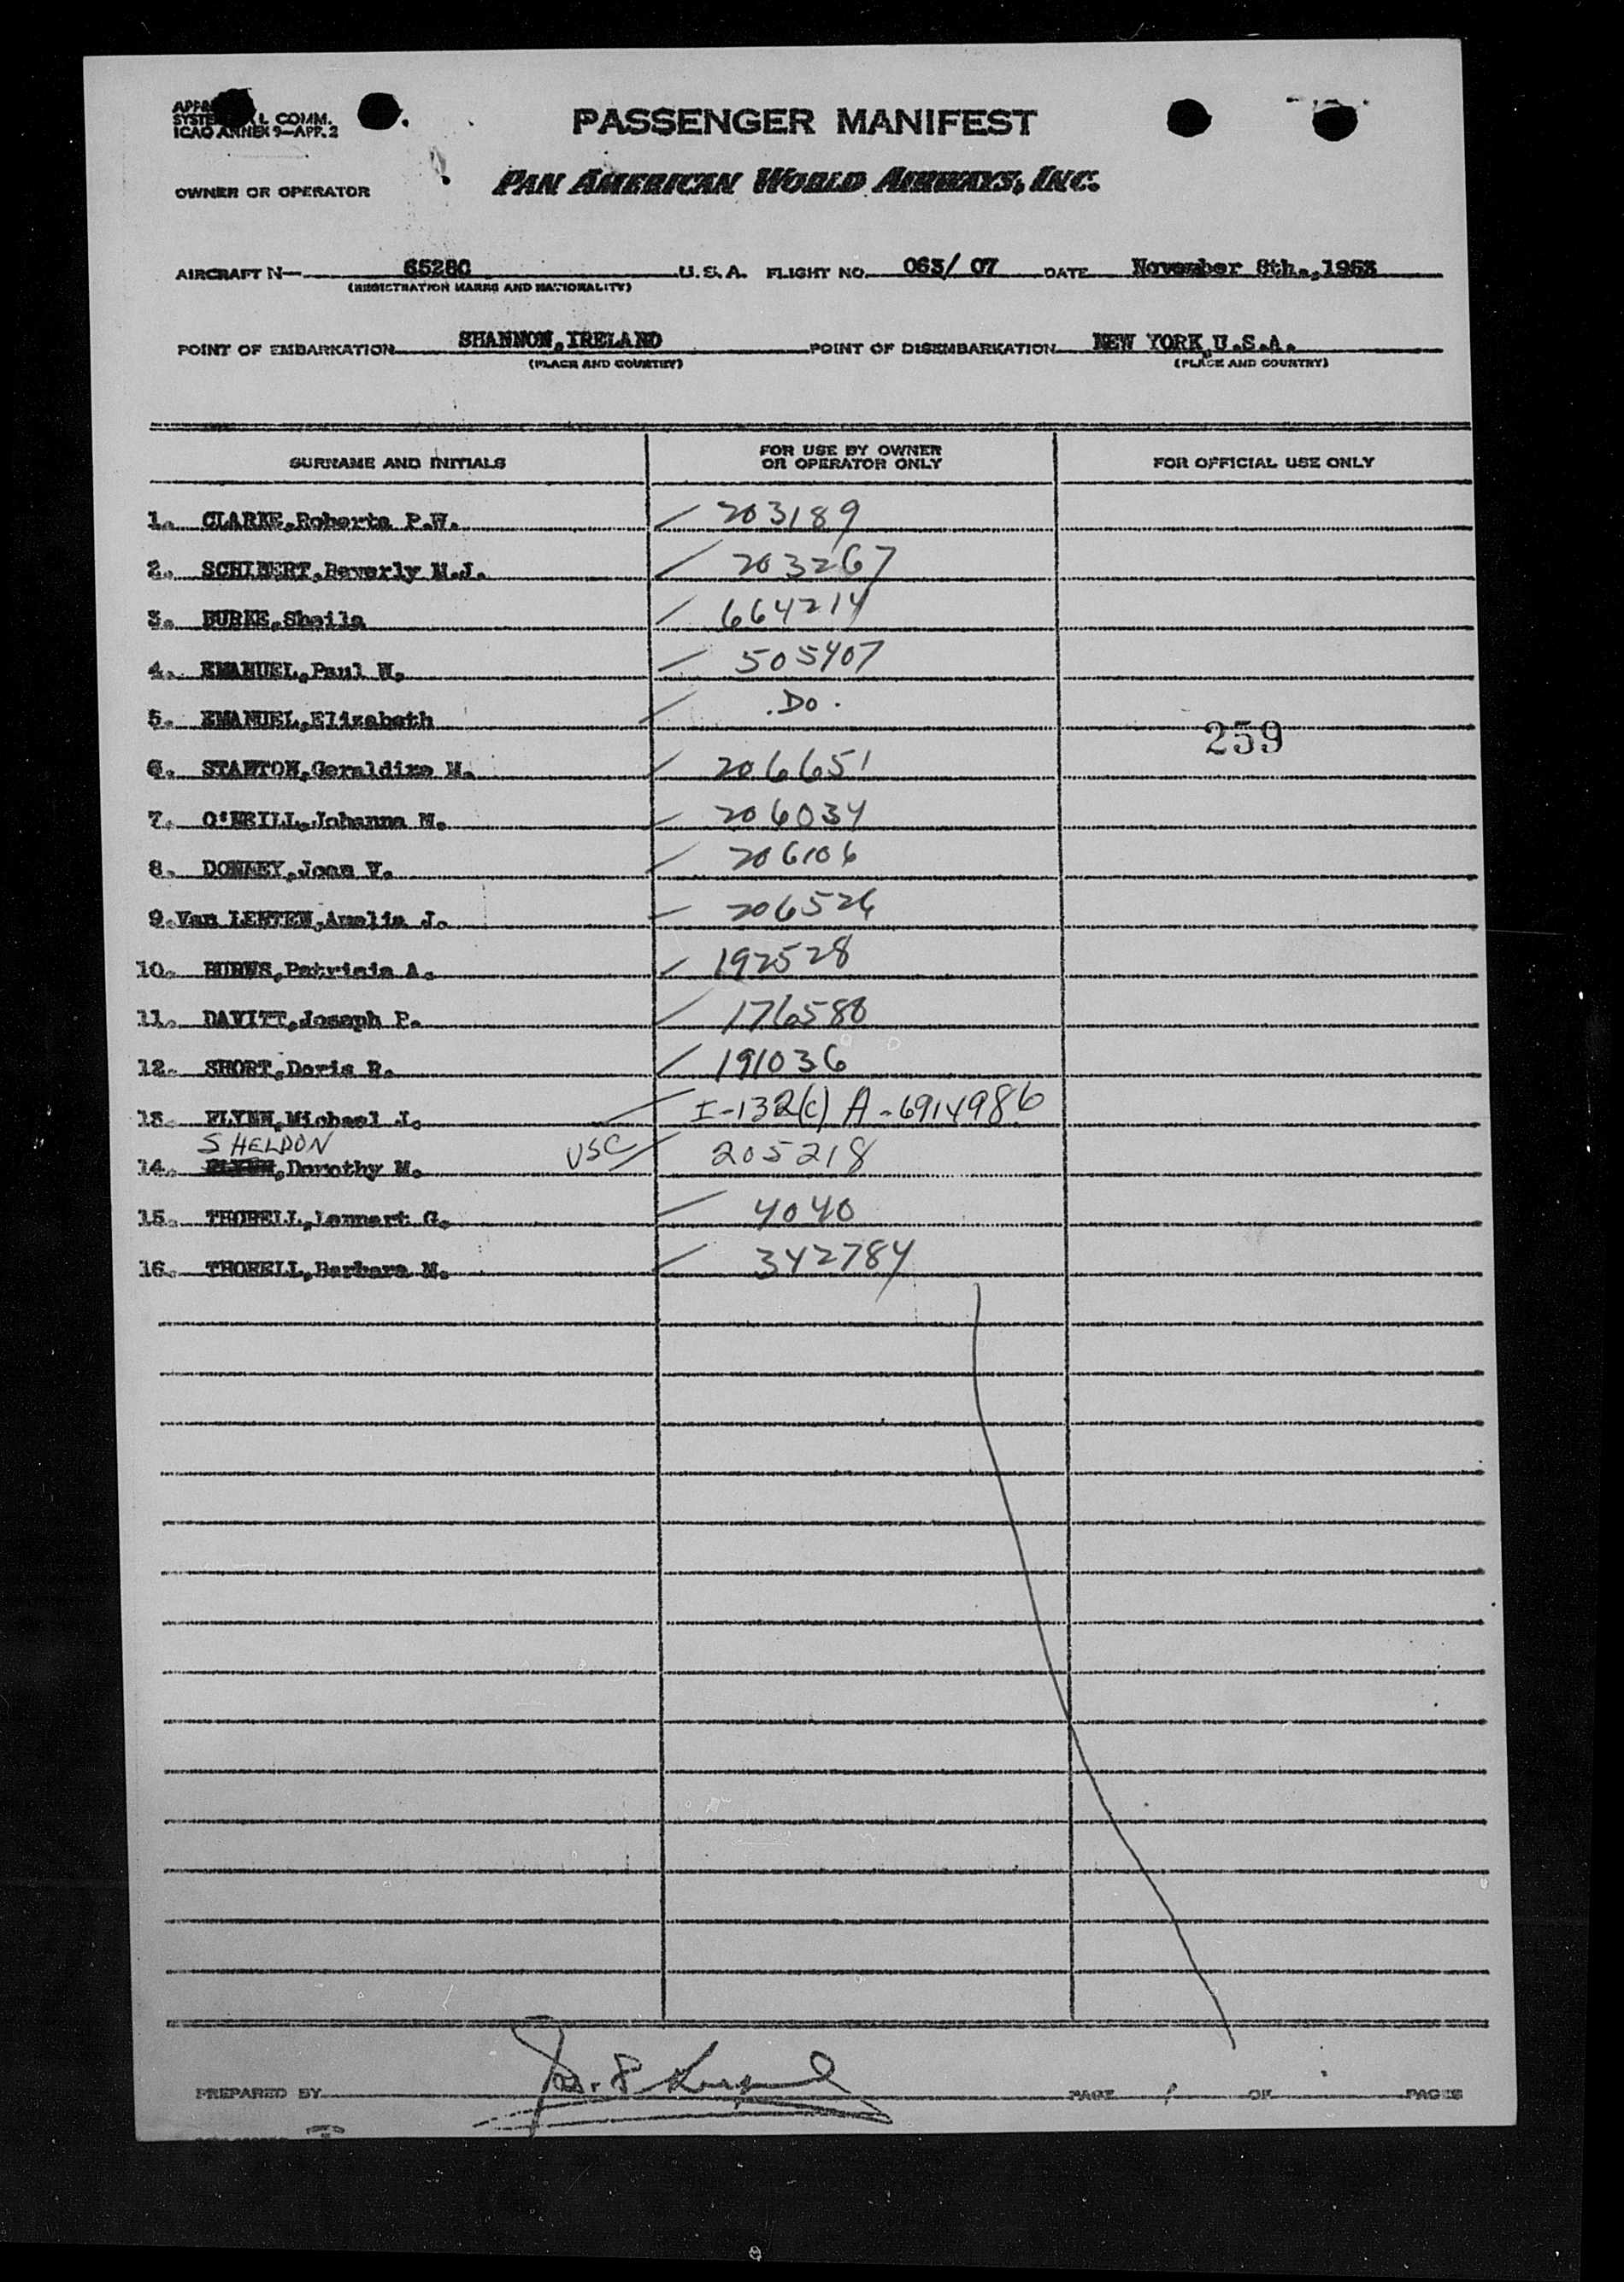 SYSTE L COMM.
ICAO ANNEX 9—APP. 2
PASSENGER MANIFEST
OWNER OR OPERATOR PAN AMERICAN WORLD AIRWAYS, INC.
AIRCRAFT N— 65280 U.S.A. FLIGHT NO. 063/ 07 DATE November 8th., 1953
(REGISTRATION MARKS AND NATIONALITY)
POINT OF EMBARKATION SHANNON, IRELAND POINT OF DISEMBARKATION NEW YORK, U.S.A.
(PLACE AND COUNTRY) (PLACE AND COUNTRY)
SURNAME AND INITIALS FOR USE BY OWNER OR OPERATOR ONLY FOR OFFICIAL USE ONLY
1. CLARKE, Roberta P.W. 203189
2. Beverly M.J. 203267
3. BURKE, Sheila 664214
4. EMANUEL, Paul W. 505407
5. EMANUEL, Elizabeth .Do.
259
6. STANTON, Geraldine M. 206651
7. O'NEILL, Johanna M. 206034
8. Joan V. 206106
9. Van Amelia J. 206526
10. BURNS, Patricia A. 192528
11. DAVITT, Joseph P. 176588
12. SHORT, Doris R. 191036
13. FLYNN, Michael J. I-132(c) A-6914986
SHELDON
14. FLYNN, Dorothy M. USC 205218
15. THORELL, Lennart G. 4040
16. THORELL, Barbara M. 342784
PREPARED BY PAGE 1 OF PAGES